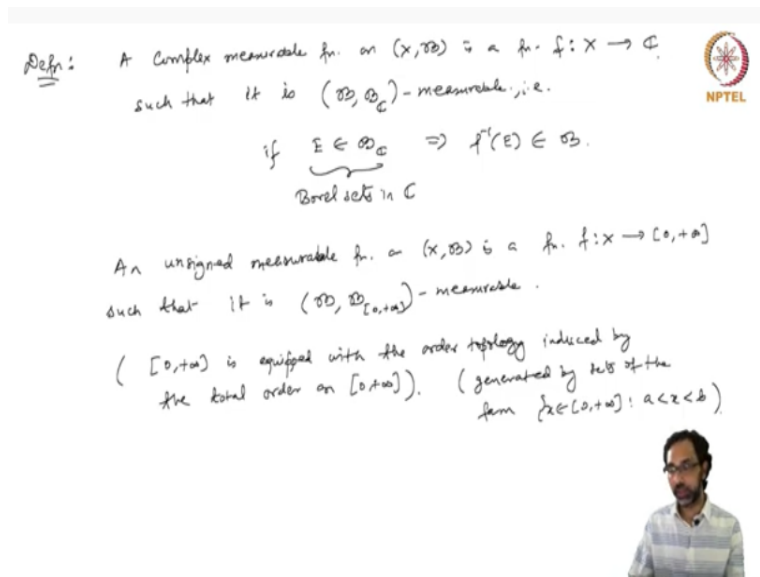 Defn: A complex measurable fn. on (X, 𝓑) is a fn. f : X → ℂ
such that it is (𝓑, 𝓑_ℂ)-measurable, i.e.
if E ∈ 𝓑_ℂ ⇒ f⁻¹(E) ∈ 𝓑.
Borel sets in ℂ
An unsigned measurable fn. on (X, 𝓑) is a fn. f : X → [0,+∞]
such that it is (𝓑, 𝓑_[0,+∞])-measurable.
( [0,+∞] is equipped with the order topology induced by
the total order on [0,+∞]). (generated by sets of the
form {x ∈ [0,+∞] : a < x < b)
NPTEL